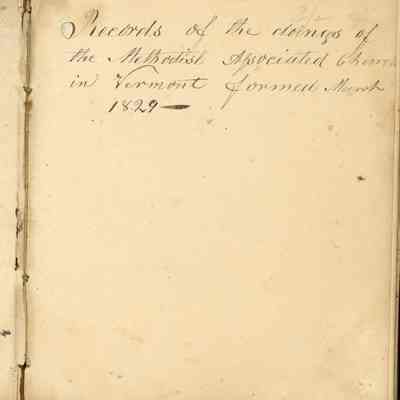 Records of the doings of
the Methodist Associated Church
in Vermont formed March
1829